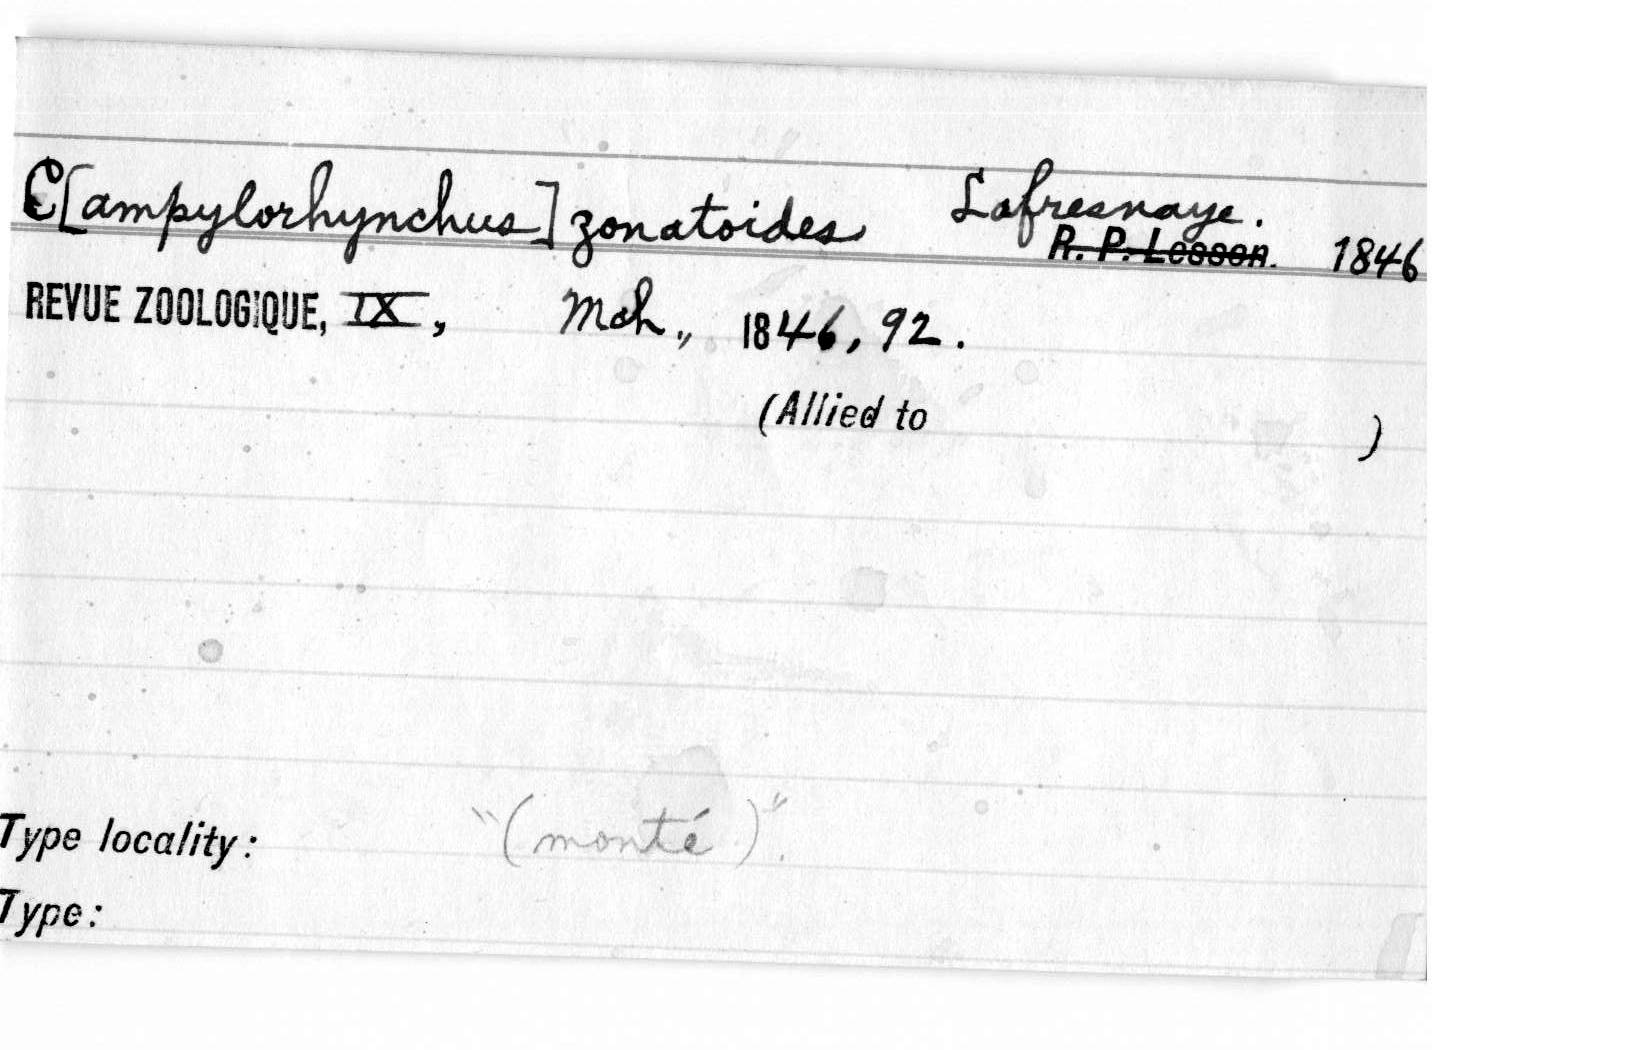 C[ampylorhynchus] zonatoides Lafresnaye.
R. P. Lesson. 1846
REVUE ZOOLOGIQUE, IX, Mch., 1846, 92.
(Allied to )
Type locality: "(monté)".
Type: